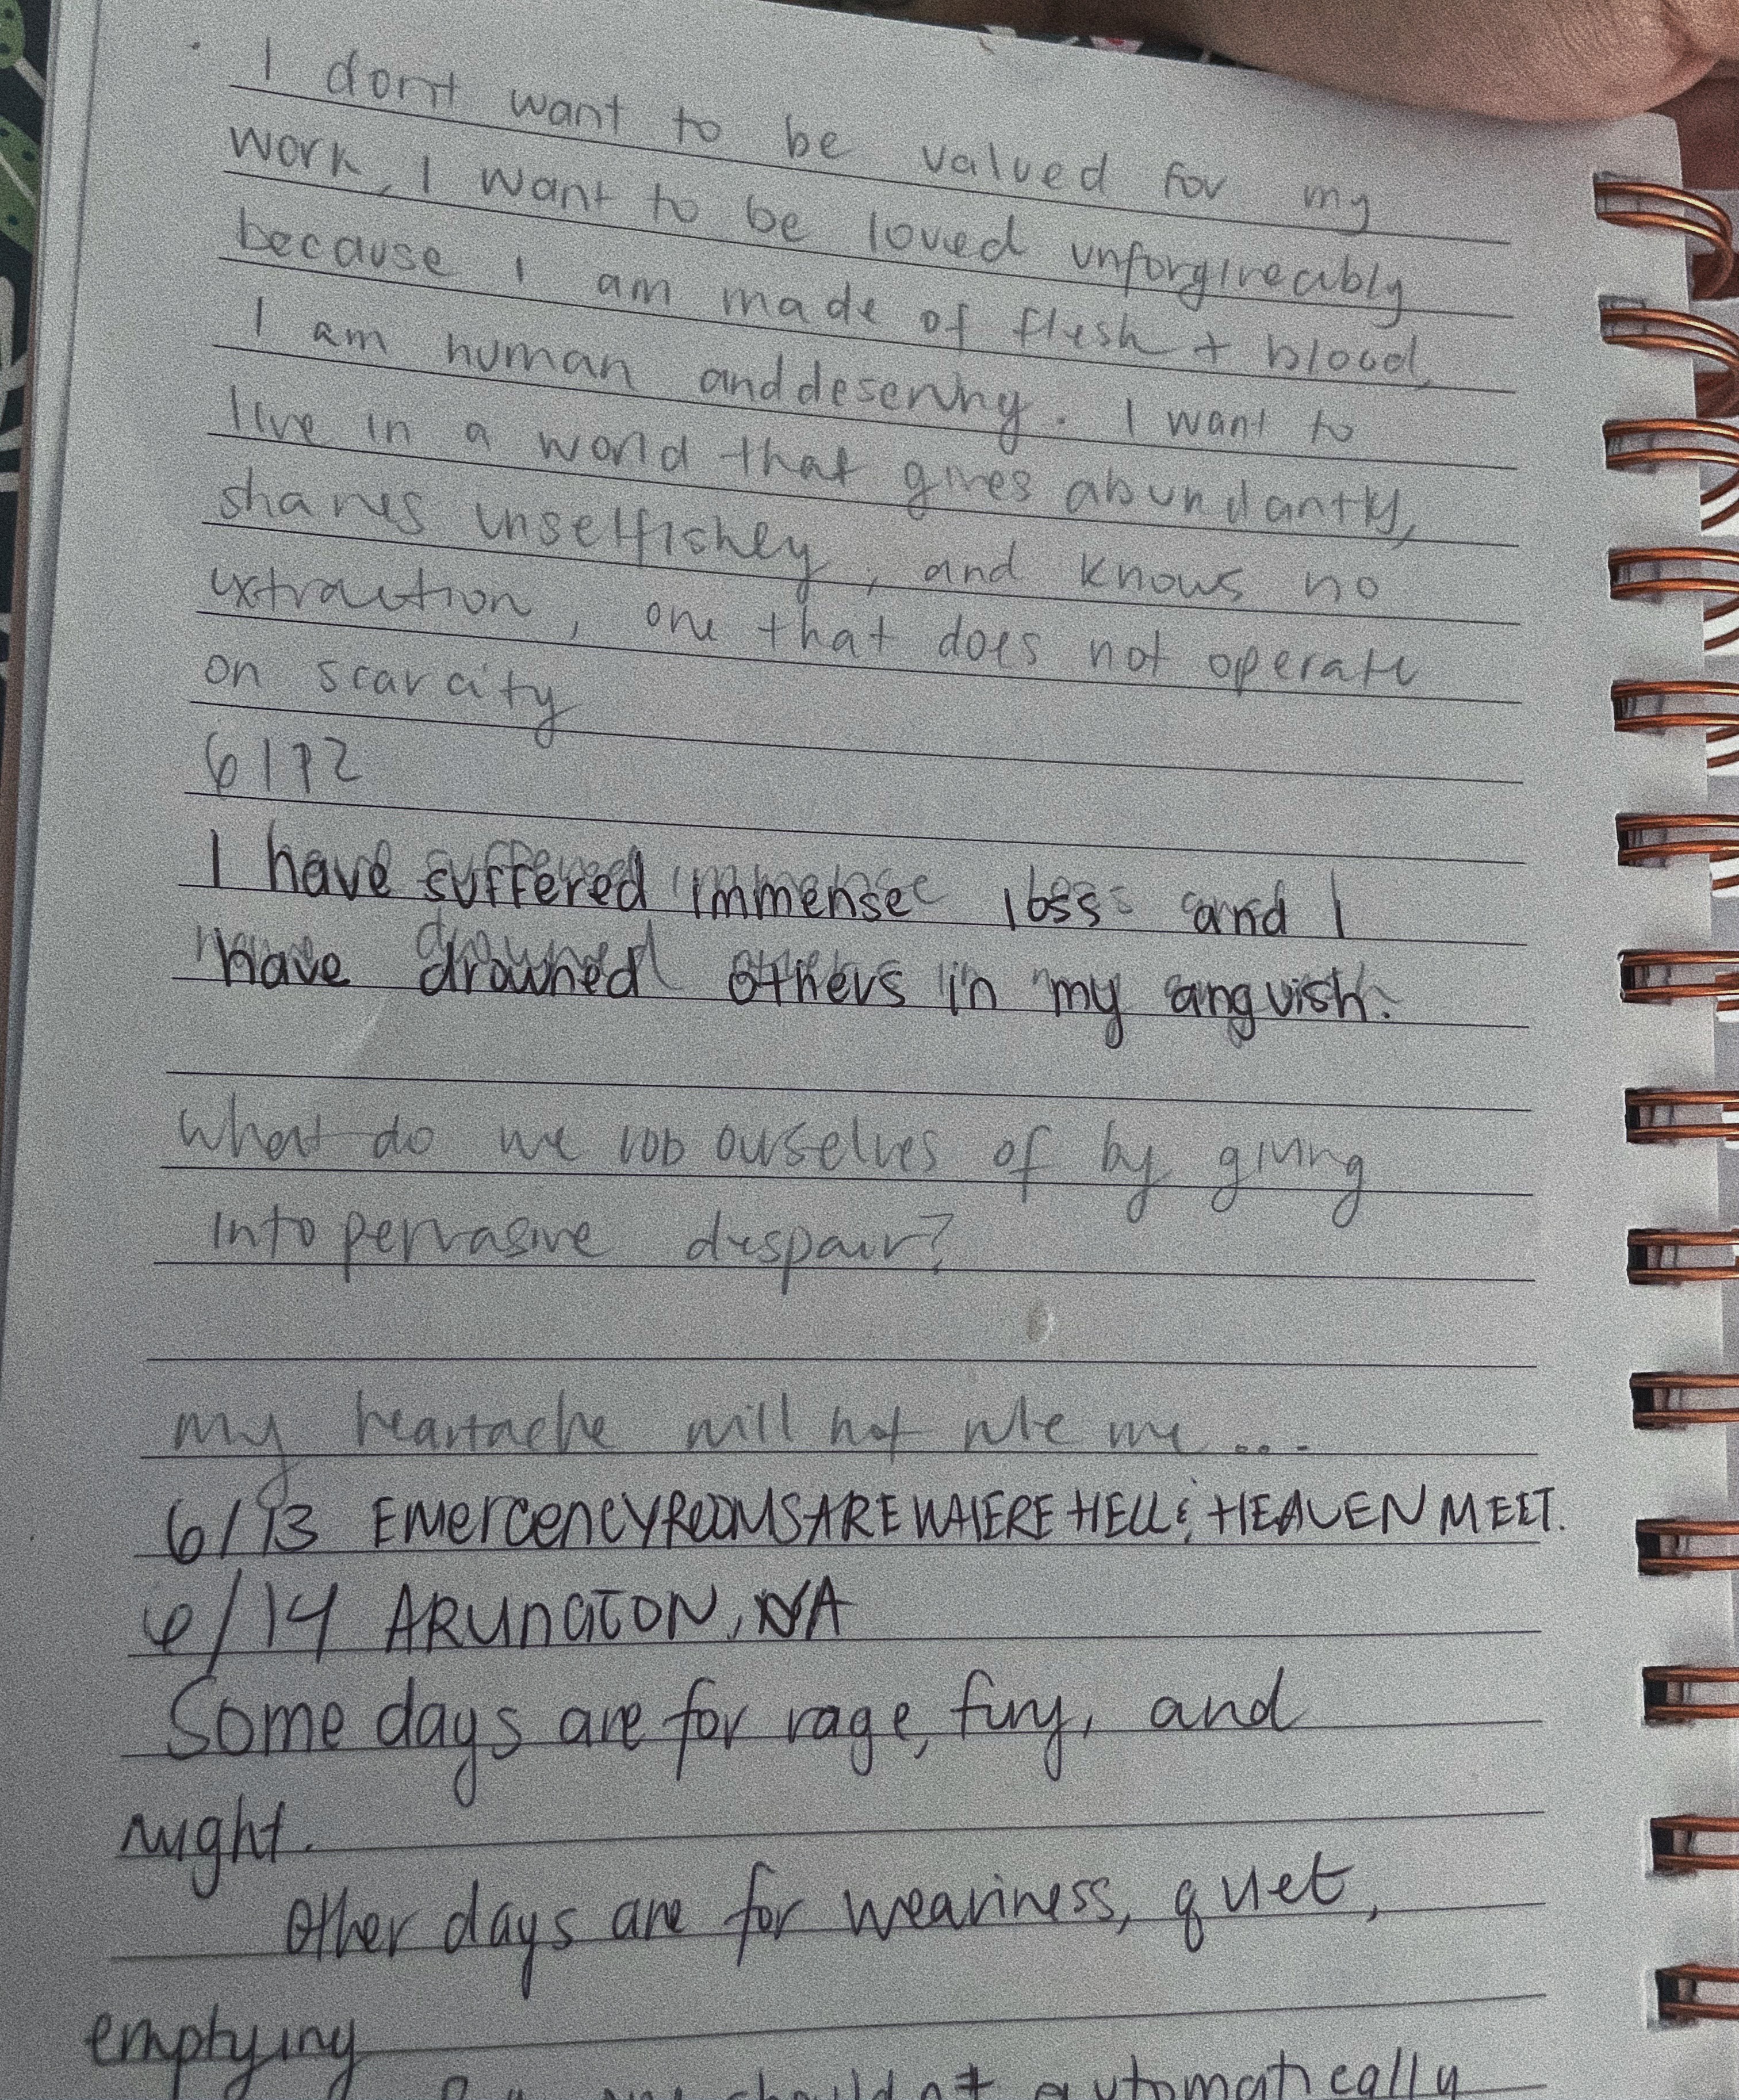 I don't want to be valued for my
work, I want to be loved unforgiveably
because I am made of flesh + blood,
I am human and deserving. I want to
live in a world that gives abundantly,
shares unselfishley, and knows no
extraction, one that does not operate
on scarcity
6/12
I have suffered immense loss and I
have drowned others in my anguish.
What do we rob ourselves of by giving
into pervasive despair?
my heartache will not rule me...
6/13 EMERGENCY ROOMS ARE WHERE HELL & HEAVEN MEET.
6/14 ARLINGTON, VA
Some days are for rage, fury, and
might.
Other days are for weariness, quiet,
emptying
should not automatically